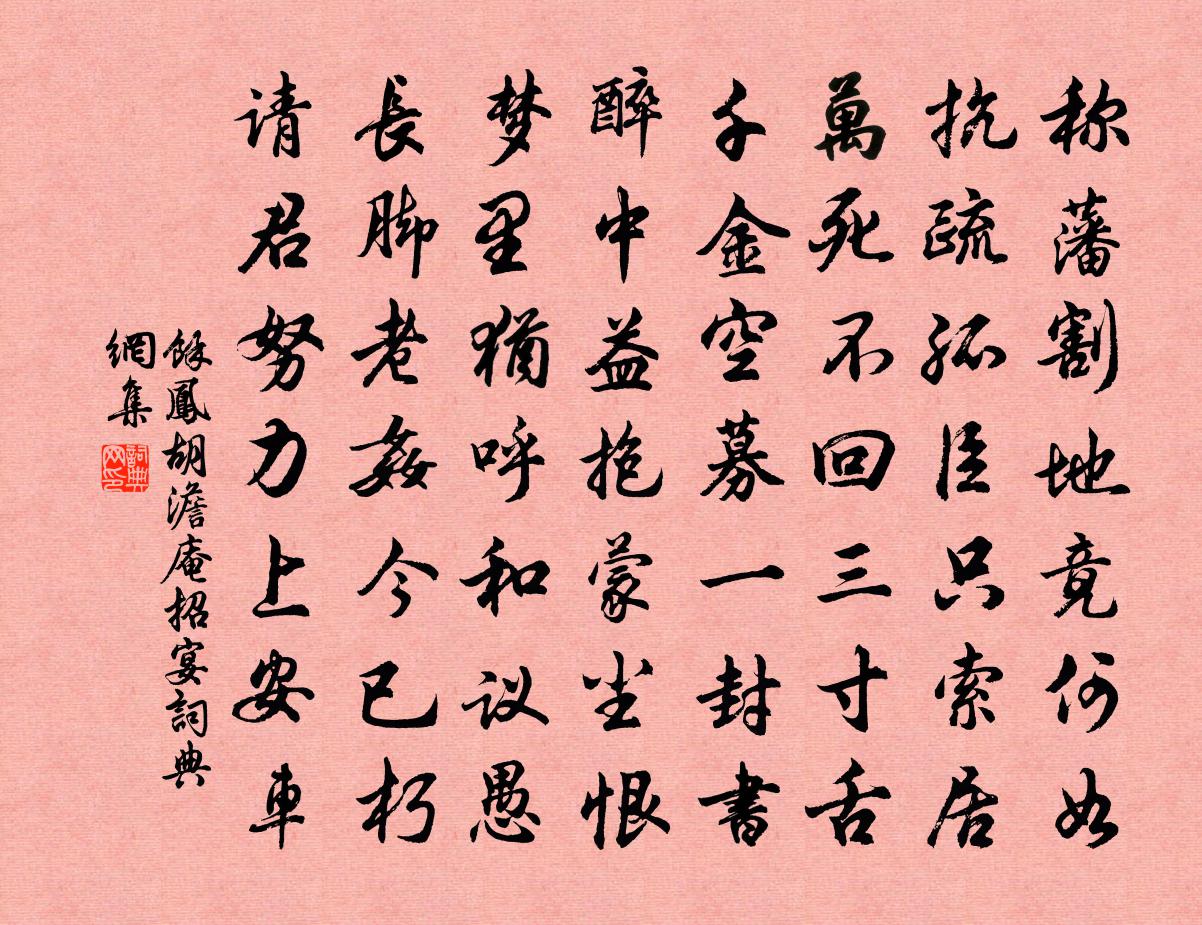 称藩割地竟何如
抗疏孤臣只索居
萬死不回三寸舌
千金空募一封書
醉中益抱蒙尘恨
梦里猶呼和议愚
長脚老姦今已朽
请君努力上安車
餘鳳胡澹庵招宴詞典
網集
詞典網印